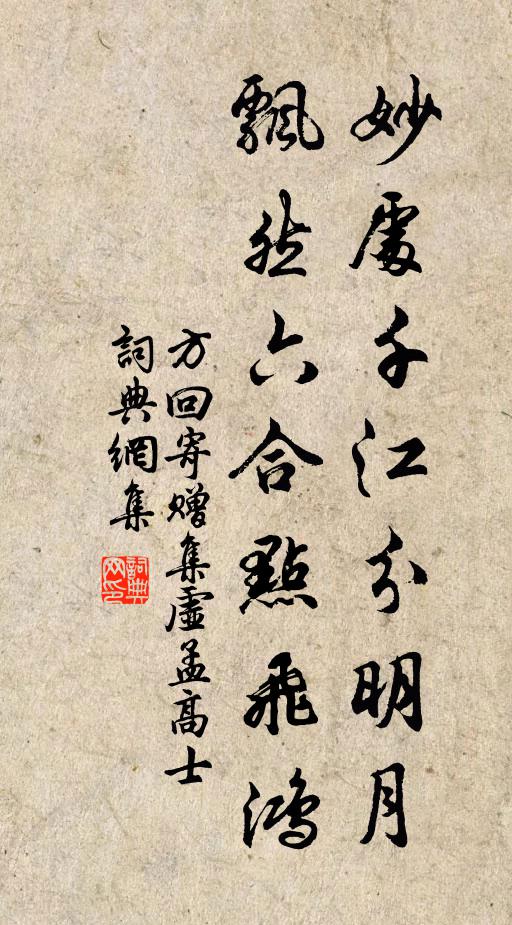 妙處千江分明月
飄然六合點飛鴻
方回寄贈集虛孟高士
詞典網集
詞典网印